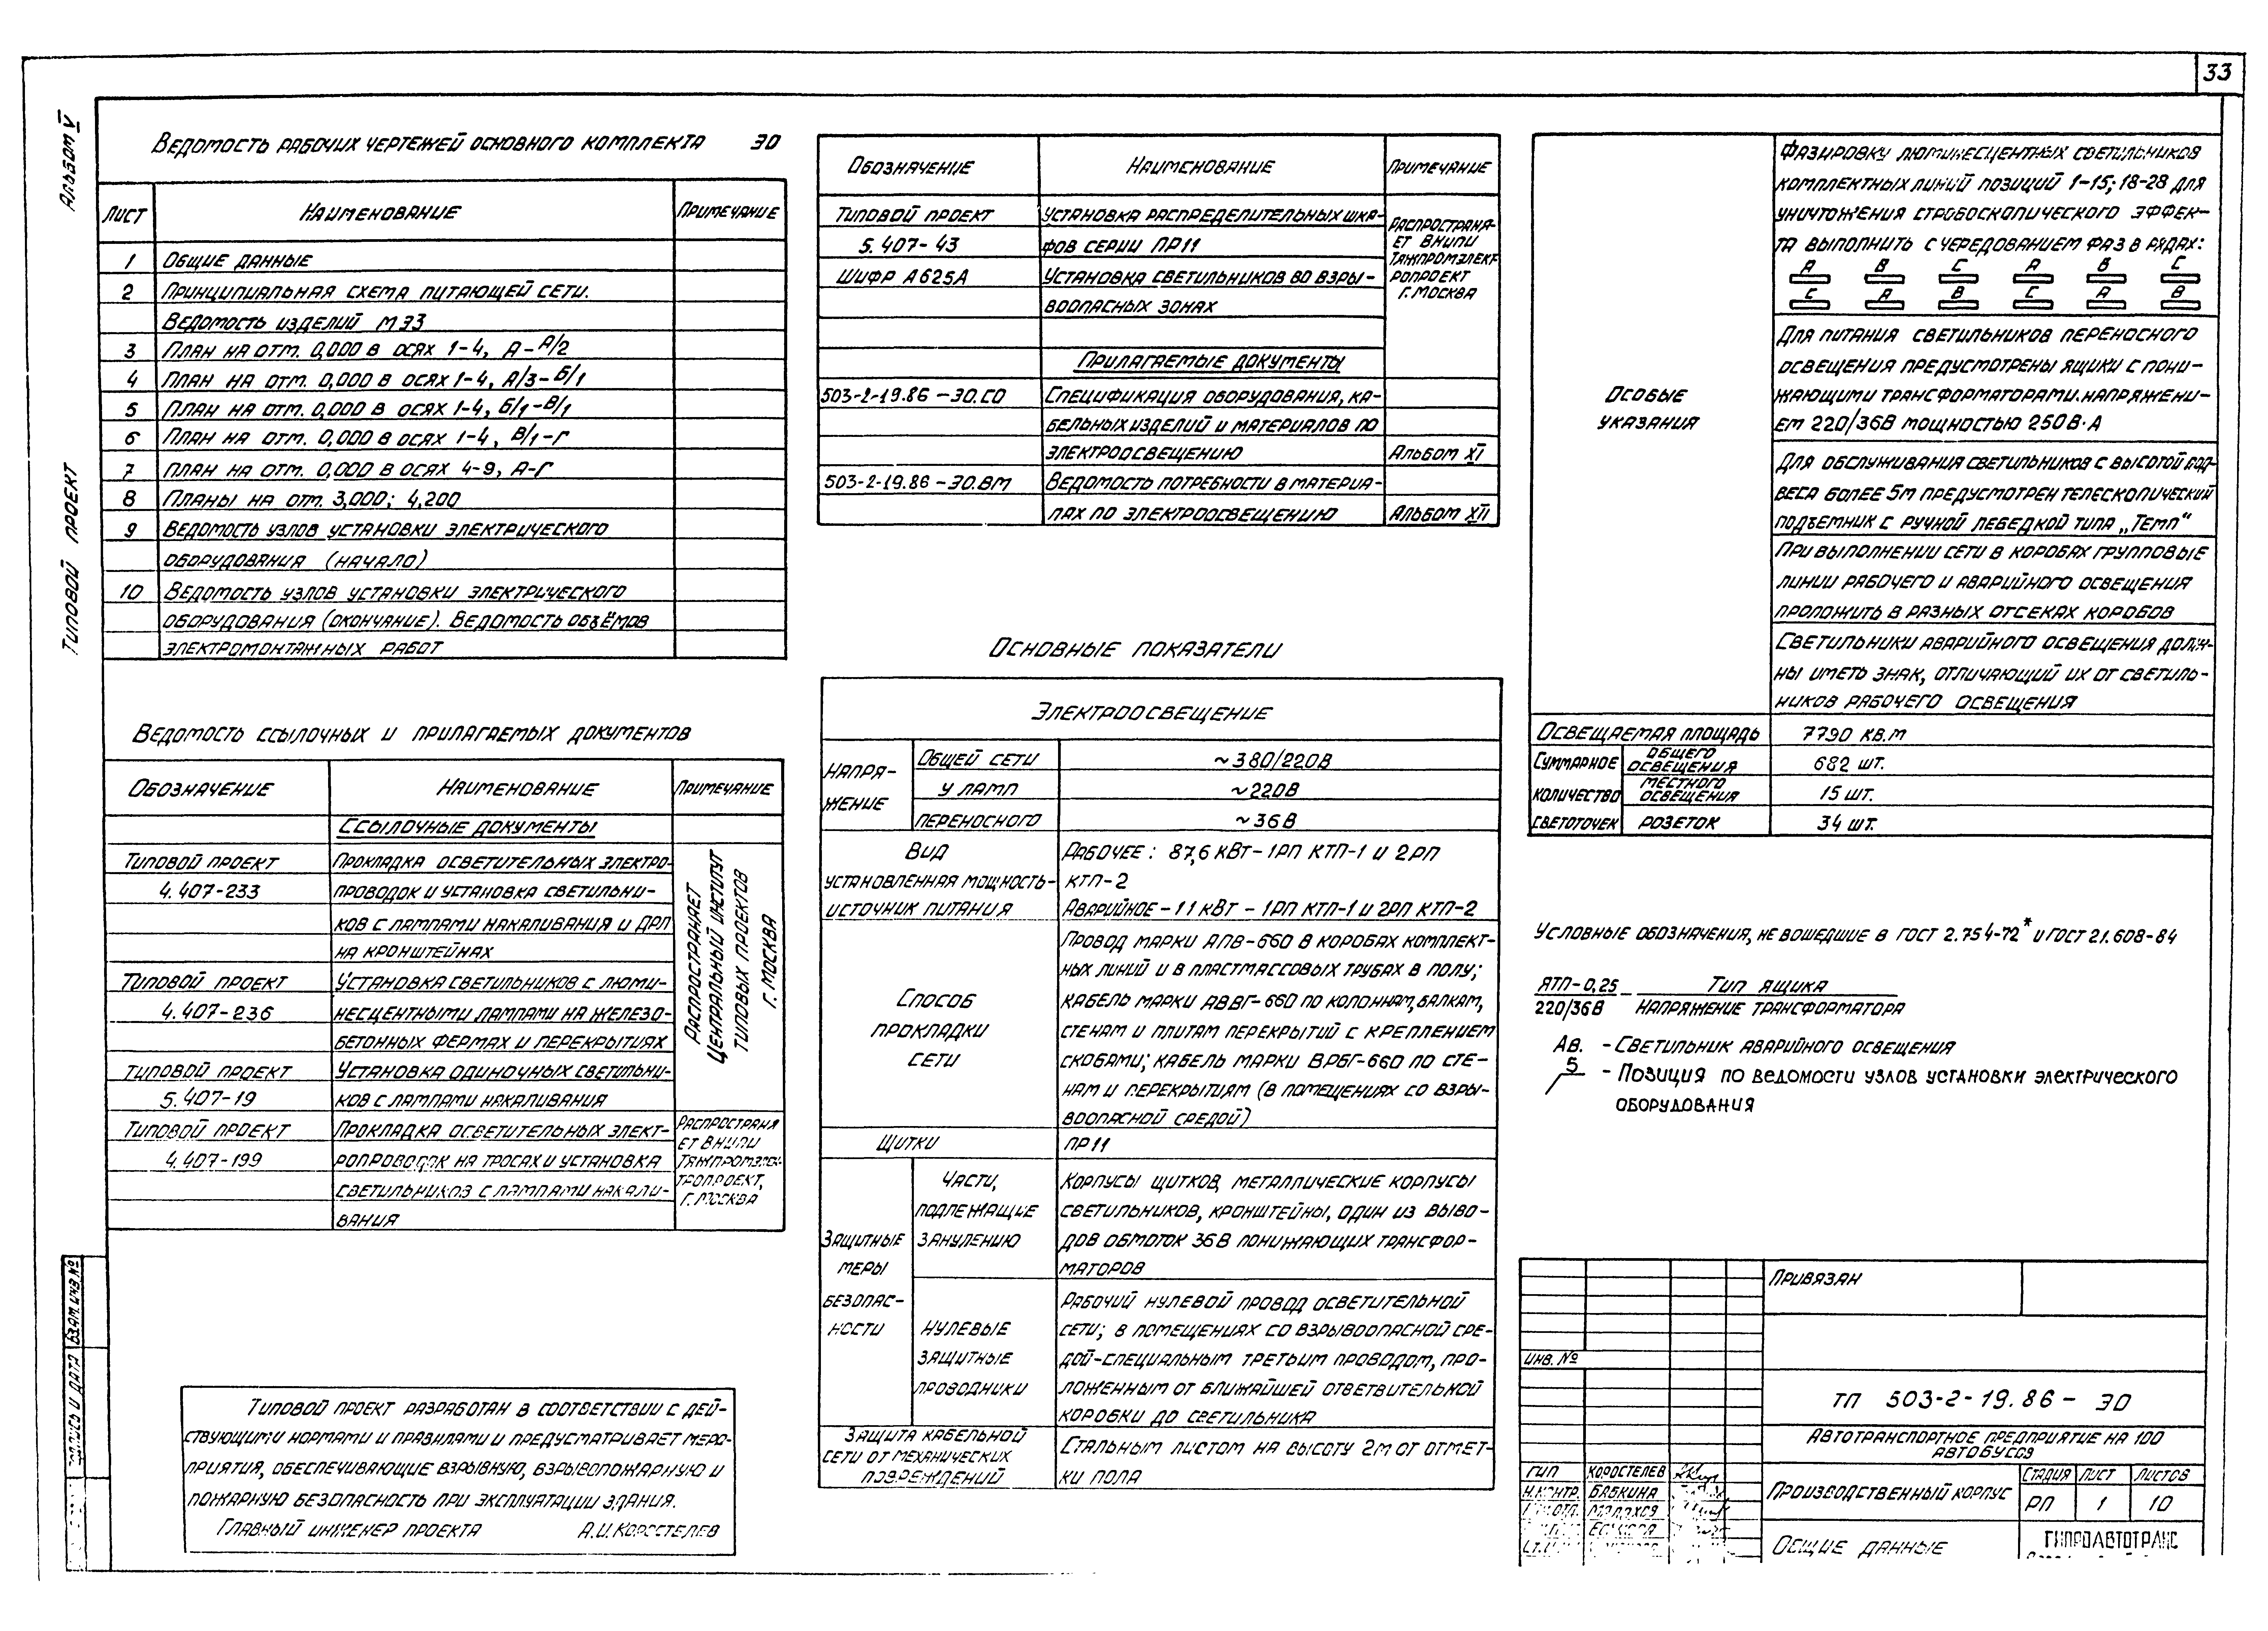 33
Альбом V
Типовой проект
Ведомость рабочих чертежей основного комплекта ЭО
Лист Наименование Примечание
1 Общие данные
2 Принципиальная схема питающей сети.
Ведомость изделий МЭЗ
3 План на отм. 0,000 в осях 1-4, А-А/2
4 План на отм. 0,000 в осях 1-4, А/3-Б/1
5 План на отм. 0,000 в осях 1-4, Б/1-В/1
6 План на отм. 0,000 в осях 1-4, В/1-Г
7 План на отм. 0,000 в осях 4-9, А-Г
8 Планы на отм. 3,000; 4,200
9 Ведомость узлов установки электрического
оборудования (начало)
10 Ведомость узлов установки электрического
оборудования (окончание). Ведомость объёмов
электромонтажных работ
Ведомость ссылочных и прилагаемых документов
Обозначение Наименование Примечание
Ссылочные документы
Типовой проект Прокладка осветительных электро-
4.407-233 проводок и установка светильни-
ков с лампами накаливания и ДРЛ
на кронштейнах
Типовой проект Установка светильников с люми-
4.407-236 несцентными лампами на железо-
бетонных фермах и перекрытиях
Типовой проект Установка одиночных светильни-
5.407-19 ков с лампами накаливания
Распространяет
Центральный институт
типовых проектов
г. Москва
Типовой проект Прокладка осветительных элект-
4.407-199 ропроводок на тросах и установка
светильников с лампами накали-
вания
Распространя
ет ВНИПИ
Тяжпромэлек-
тропроект,
г. Москва
Типовой проект разработан в соответствии с дей-
ствующими нормами и правилами и предусматривает меро-
приятия, обеспечивающие взрывную, взрывопожарную и
пожарную безопасность при эксплуатации здания.
Главный инженер проекта А.И. Коростелев
Взам. инв. №
Подпись и дата
Обозначение Наименование Примечание
Типовой проект Установка распределительных шка-
5.407-43 фов серии ПР11
Шифр А625А Установка светильников во взры-
воопасных зонах
Распространя-
ет ВНИПИ
Тяжпромэлект
ропроект
г. Москва
Прилагаемые документы
503-2-19.86-ЭО.СО Спецификация оборудования, ка-
бельных изделий и материалов по
электроосвещению Альбом XI
503-2-19.86-ЭО.ВМ Ведомость потребности в материа-
лах по электроосвещению Альбом XII
Основные показатели
Электроосвещение
Напря-
жение
Общей сети ~380/220В
У ламп ~220В
Переносного ~36В
Вид
установленная мощность-
источник питания
Рабочее: 87,6 кВт-1РП КТП-1 и 2РП
КТП-2
Аварийное-11кВт-1РП КТП-1 и 2РП КТП-2
Способ
прокладки
сети
Провод марки АПВ-660 в коробах комплект-
ных линий и в пластмассовых трубах в полу;
кабель марки АВВГ-660 по колоннам, балкам,
стенам и плитам перекрытий с креплением
скобами; кабель марки ВРБГ-660 по сте-
нам и перекрытиям (в помещениях со взры-
воопасной средой)
Щитки ПР11
Защитные
меры
безопас-
ности
Части,
подлежащие
занулению
Корпусы щитков, металлические корпусы
светильников, кронштейны, один из выво-
дов обмоток 36В понижающих трансфор-
маторов
Нулевые
защитные
проводники
Рабочий нулевой провод осветительной
сети; в помещениях со взрывоопасной сре-
дой-специальным третьим проводом, про-
ложенным от ближайшей ответвительной
коробки до светильника
Защита кабельной
сети от механических
повреждений
Стальным листом на высоту 2м от отмет-
ки пола
Особые
указания
Фазировку люминесцентных светильников
комплектных линий позиций 1-15; 18-28 для
уничтожения стробоскопического эффек-
та выполнить с чередованием фаз в рядах:
А В С А В С
С А В С А В
Для питания светильников переносного
освещения предусмотрены ящики с пони-
жающими трансформаторами, напряжени-
ем 220/36В мощностью 250В·А
Для обслуживания светильников с высотой под-
веса более 5м предусмотрен телескопический
подъемник с ручной лебедкой типа „Темп“
При выполнении сети в коробах групповые
линии рабочего и аварийного освещения
проложить в разных отсеках коробов
Светильники аварийного освещения долж-
ны иметь знак, отличающий их от светиль-
ников рабочего освещения
Освещаемая площадь 7790 кв.м
Суммарное
количество
светоточек
общего
освещения 682 шт.
местного
освещения 15 шт.
розеток 34 шт.
Условные обозначения, не вошедшие в ГОСТ 2.754-72* и ГОСТ 21.608-84
ЯТП-0,25 - Тип ящика
220/36В Напряжение трансформатора
Ав. - Светильник аварийного освещения
5 - Позиция по ведомости узлов установки электрического
оборудования
Привязан
Инв. №
ТП 503-2-19.86- ЭО
Автотранспортное предприятие на 100
автобусов
ГИП Коростелев
Н.контр. Бабкина
Производственный корпус
Стадия Лист Листов
РП 1 10
Общие данные
Гипроавтотранс